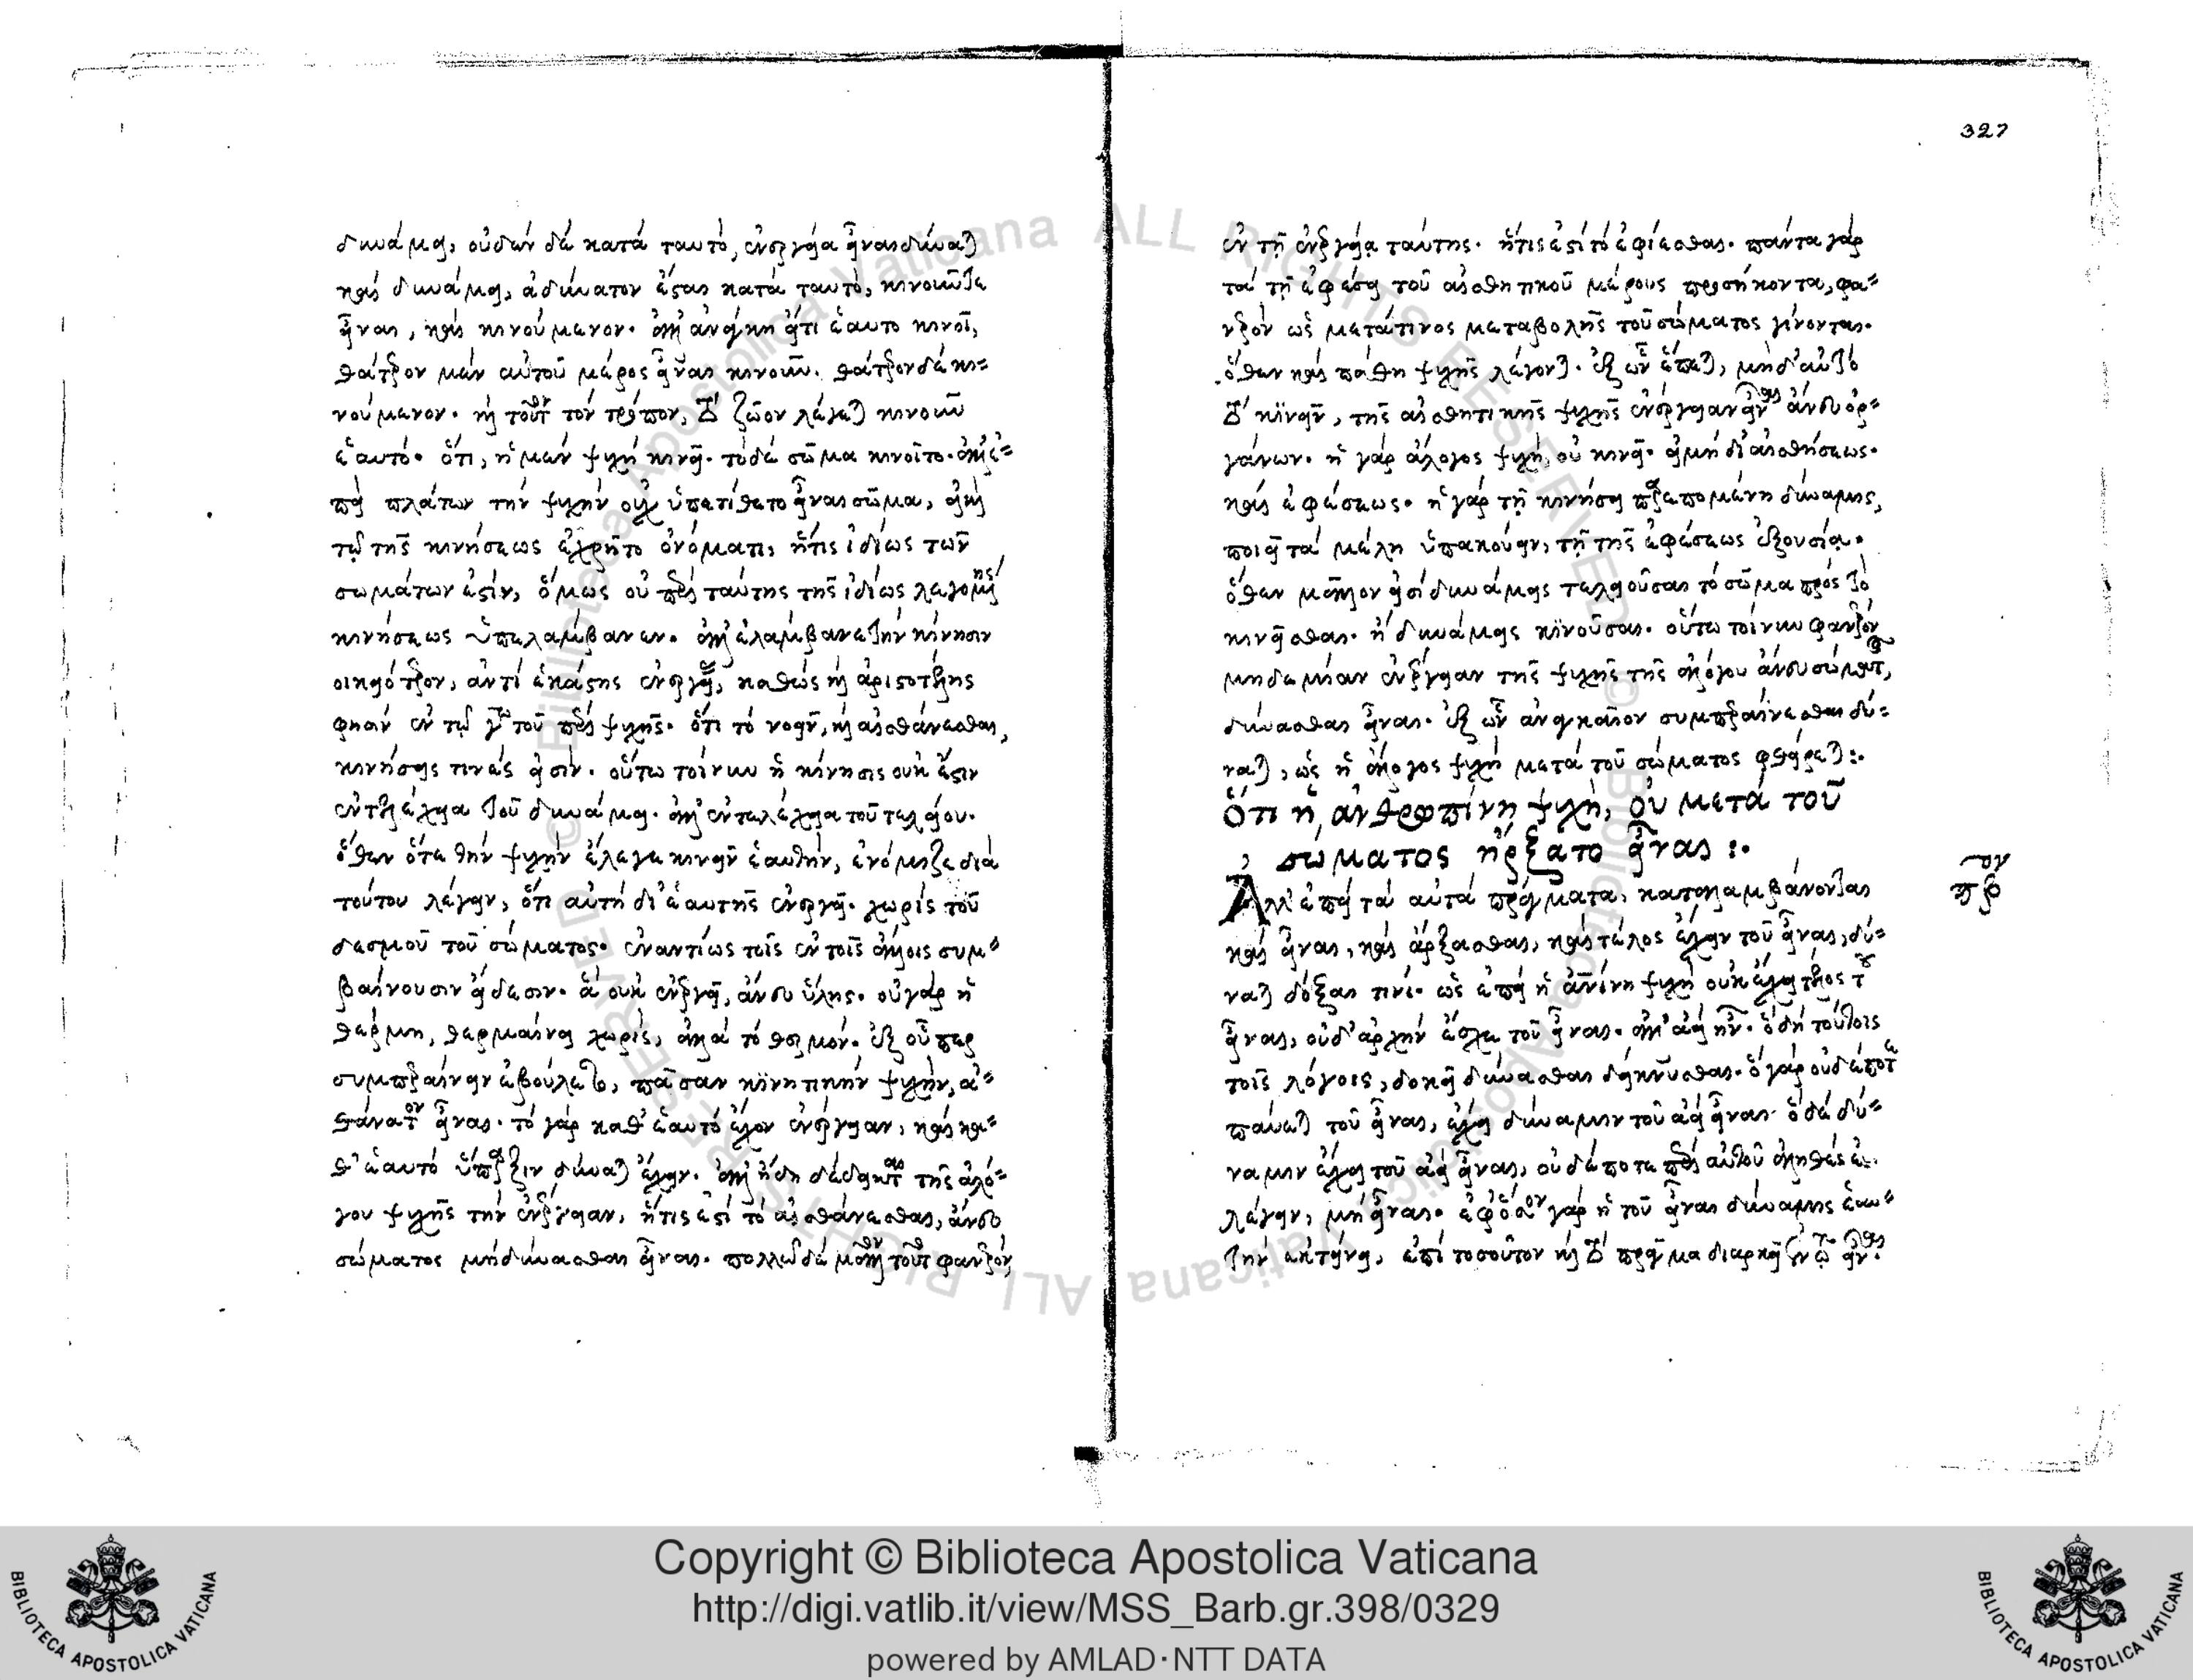 δυνάμει, οὐδὲν δὲ κατὰ ταυτὸ, ἐνεργείᾳ εἶναι δύναται
καὶ δυνάμει, ἀδύνατον ἔσται κατὰ ταυτὸ, κινοῦντε
εἶναι, καὶ κινούμενον. ἀλλ' ἀνάγκη εἴ τι ἑαυτὸ κινοῖ,
θάτερον μὲν αὐτοῦ μέρος εἶναι κινοῦν. θάτερον δὲ κι=
νούμενον. καὶ τοῦτον τὸν τρόπον, τὸ ζῶον λέγεται κινοῦν
ἑαυτό. ὅτι, ἡ μὲν ψυχὴ κινεῖ. τὸ δὲ σῶμα κινοῖτο. ἀλλ' ἐ=
πεὶ πλάτων τὴν ψυχὴν οὐχ ὑπετίθετο εἶναι σῶμα, εἰ καὶ
τῷ τῆς κινήσεως ἐχρῆτο ὀνόματι, ἥτις ἰδίως τῶν
σωμάτων ἐστίν, ὅμως οὐ περὶ ταύτης τῆς ἰδίως λεγομένης
κινήσεως ὑπελάμβανεν. ἀλλ' ἐλάμβανε τὴν κίνησιν
οικειότερον, ἀντὶ ἑκάστης ἐνεργείας, καθὼς καὶ ἀριστοτέλης
φησὶν ἐν τῷ γῳ τοῦ περὶ ψυχῆς. ὅτι τὸ νοεῖν, καὶ αἰσθάνεσθαι,
κινήσεις τινές εἰσιν. οὕτω τοίνυν ἡ κίνησις οὐκ ἔστιν
ἐντελέχεια τοῦ δυνάμει. ἀλλ' ἐντελέχεια τοῦ τελείου.
ὅθεν ὅτε τὴν ψυχὴν ἔλεγε κινεῖν ἑαυτὴν, ἐνόμιζε διὰ
τούτου λέγειν, ὅτι αὐτὴ δι' ἑαυτῆς ἐνεργεῖ. χωρὶς τοῦ
δεσμοῦ τοῦ σώματος. ἐναντίως τοῖς ἐν τοῖς ἄλλοις συμ=
βαίνουσιν εἴδεσιν. ἃ οὐκ ἐνεργεῖ, ἄνευ ὕλης. οὐ γὰρ ἡ
θέρμη, θερμαίνει χωρὶς, ἀλλὰ τὸ θερμόν. ἐξ οὗπερ
συμπεραίνειν ἐβούλετο, πᾶσαν κινητικὴν ψυχὴν, ἀ=
θάνατον εἶναι. τὸ γὰρ καθ' ἑαυτὸ ἔχον ἐνέργειαν, καὶ κα=
θ' ἑαυτὸ ὕπαρξιν δύναται ἔχειν. ἀλλ' ἤδη δέδεικται τῆς ἀλό=
γου ψυχῆς τὴν ἐνέργειαν, ἥτις ἐστὶ τὸ αἰσθάνεσθαι, ἄνευ
σώματος μὴ δύνασθαι εἶναι. πολλῷ δὲ μᾶλλον τοῦτο φανερὸν
327
ἐν τῇ ἐνεργείᾳ ταύτης. ἥτις ἐστὶ τὸ ἐφίεσθαι. πάντα γὰρ
τὰ τῇ ἐφέσει τοῦ αἰσθητικοῦ μέρους προσήκοντα, φα=
νερὸν ὡς μετά τινος μεταβολῆς τοῦ σώματος γίνονται.
ὅθεν καὶ πάθη ψυχῆς λέγονται. ἐξ ὧν ἕπεται, μηδ' αὐτὸ
τὸ κινεῖν, τῆς αἰσθητικῆς ψυχῆς ἐνέργειαν εἶναι ἄνευ ὀρ=
γάνων. ἡ γὰρ ἄλογος ψυχὴ, οὐ κινεῖ. εἰ μὴ δι' αἰσθήσεως.
καὶ ἐφέσεως. ἡ γὰρ τῇ κινήσει προεπομένη δύναμις,
ποιεῖ τὰ μέλη ὑπακούειν, τῇ τῆς ἐφέσεως ἐξουσίᾳ.
ὅθεν μᾶλλον εἰσὶ δυνάμεις τελειοῦσαι τὸ σῶμα πρὸς τὸ
κινεῖσθαι. ἢ δυνάμεις κινοῦσαι. οὕτω τοίνυν φανερὸν
μηδεμίαν ἐνέργειαν τῆς ψυχῆς τῆς ἀλόγου ἄνευ σώματος,
δύνασθαι εἶναι. ἐξ ὧν ἀναγκαῖον συμπεραίνεσθαι δύ=
ναται, ὡς ἡ ἄλογος ψυχὴ μετὰ τοῦ σώματος φθείρεται:.
Ὅτι ἡ ἀνθρωπίνη ψυχὴ, οὐ μετὰ τοῦ
σώματος ἤρξατο εἶναι:.
Ἀλλ' ἐπεὶ τὰ αὐτὰ πράγματα, καταλαμβάνονται
καὶ εἶναι, καὶ ἄρξασθαι, καὶ τέλος ἔχειν τοῦ εἶναι, δύ=
ναται δόξαι τινὶ. ὡς ἐπεὶ ἡ ἀνίνη ψυχὴ οὐκ ἔχει τέλος τοῦ
εἶναι, οὐδ' ἀρχὴν ἔσχε τοῦ εἶναι. ἀλλ' ἀεὶ ἦν. ὃ δὴ τούτοις
τοῖς λόγοις, δοκεῖ δύνασθαι δείκνυσθαι. ὃ γὰρ οὐδέποτε
παύεται τοῦ εἶναι, ἔχει δύναμιν τοῦ ἀεὶ εἶναι. ὃ δὲ δύ=
ναμιν ἔχει τοῦ ἀεὶ εἶναι, οὐδέποτε περὶ αὐτοῦ ἀληθές ἐστι
λέγειν, μὴ εἶναι. ἐφ' ὅσον γὰρ ἡ τοῦ εἶναι δύναμις ἑαυ=
τὴν ἐκτείνει, ἐπὶ τοσοῦτον καὶ τὸ πρᾶγμα διαρκεῖ ἐν τῷ εἶναι.